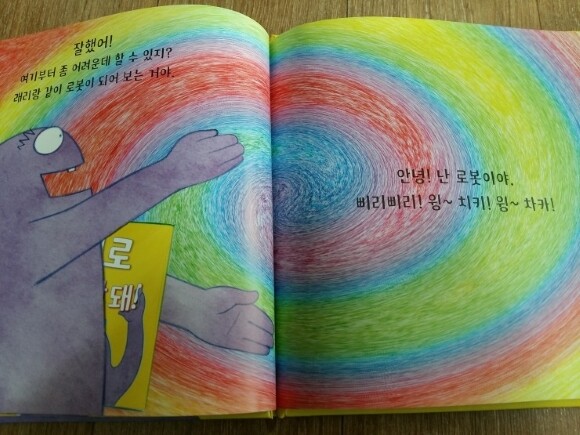 잘했어!
여기부터 좀 어려운데 할 수 있지?
래리랑 같이 로봇이 되어 보는 거야.
로
돼!
안녕! 난 로봇이야.
삐리삐리! 윙~ 치키! 윙~ 차카!